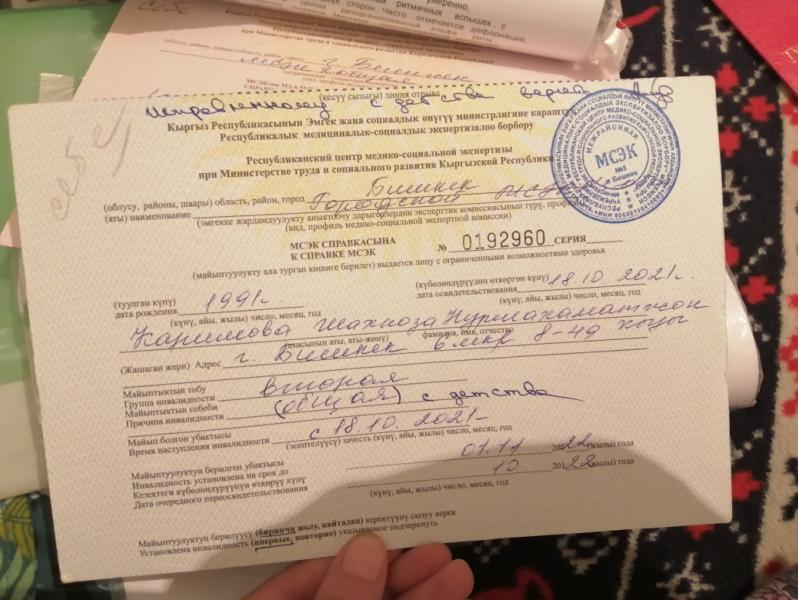 ритмичных вспышек, с
Часто отмечается деформация,
(кесүү сызыгы) линия отрыва
Исправленному с детства верить
Кыргыз Республикасынын Эмгек жана социалдык өнүгүү министрлигине караштуу
Республикалык медициналык-социалдык экспертизалоо борбору
Республиканский центр медико-социальной экспертизы
при Министерстве труда и социального развития Кыргызской Республики
(облусу, районы, шаары) область, район, город Бишкек
(аты) наименование Городской
(эмгекке жардамдуулукту аныктоочу дарыгерлердин эксперттик комиссиясынын түрү,
(вид, профиль медико-социальной экспертной комиссии)
МЕЖРАЙОННАЯ
МСЭК
МСЭК СПРАВКАСЫНА
К СПРАВКЕ МСЭК
№ 0192960 СЕРИЯ
(майыптуулукту ала турган кишиге берилет) выдается лицу с ограниченными возможностями здоровья
(туулган күнү)
дата рождения 1991г.
(күбөлөндүрүүдөн өткөргөн күнү)
дата освидетельствования 18.10.2021г.
(күнү, айы, жылы) число, месяц, год
(күнү, айы, жылы) число, месяц, год
Каримова Шахноза Нурмахаматжон
(атасынын аты, аты-жөнү) фамилия, имя, отчество
кызы
(Жашаган жери) Адрес г. Бишкек 6 мкр 8-49
Майыптыктын тобу
Группа инвалидности вторая
Майыптыктын себеби
Причина инвалидности (общая) с детства
Майып болгон убактысы
Время наступления инвалидности с 18.10.2021г.
(эсептелүүсү) зачесть (күнү, айы, жылы) число, месяц, год
Майыптуулуктун берилген убактысы
Инвалидность установлена на срок до 01.11 2022 (жылы) года
Кезектеги күбөлөндүрүүнүн өткөрүү күнү
Дата очередного переосвидетельствования 10 2022 (жылы) года
(күнү, айы, жылы) число, месяц, год
Майыптуулуктун берилүүсү (биринчи жолу, кайталап) керектүүнү сызуу керек
Установлена инвалидность (впервые, повторно) указываемое подчеркнуть